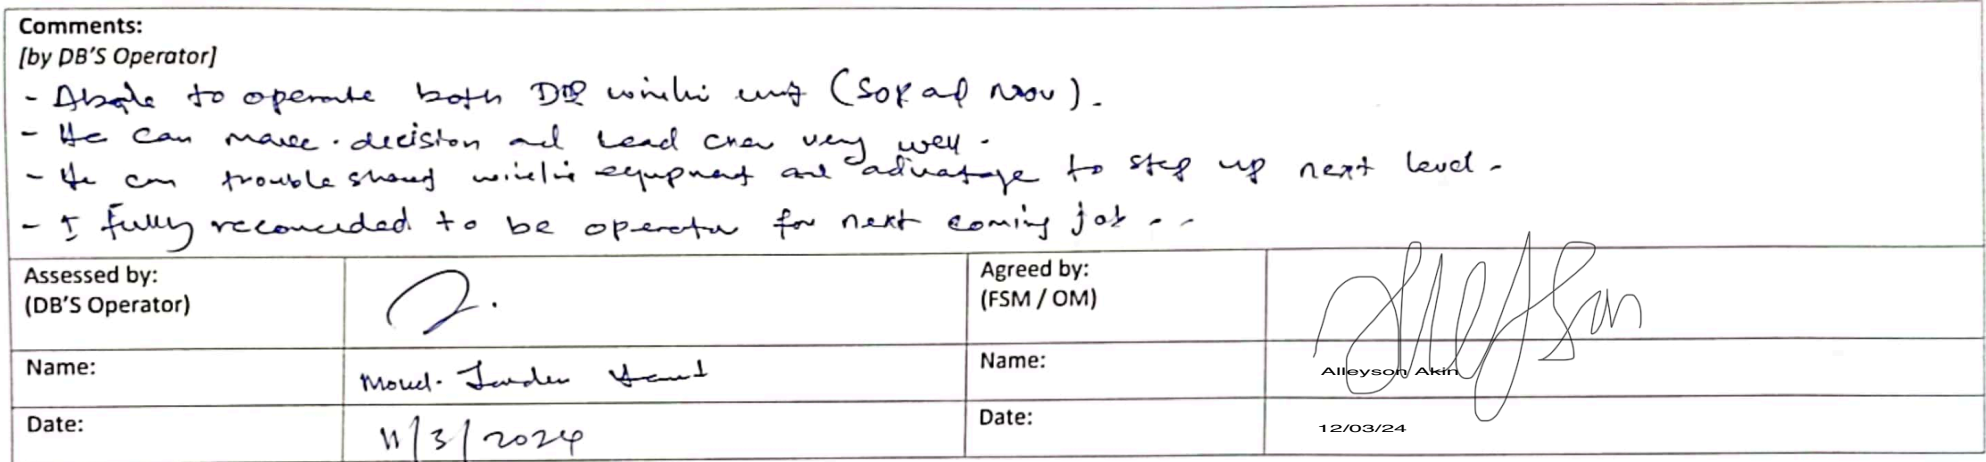 Comments:
[by DB'S Operator]
- Able to operate both DB unit (
- He can make decision and lead crew very well.
- He can trouble shoot wireline equipment and advantage to step up next level.
- I fully to be operator for next coming job..
Assessed by:
(DB'S Operator)
Agreed by:
(FSM / OM)
Name:
Name:
Alleyson Akin
Date:
11/3/2024
Date:
12/03/24